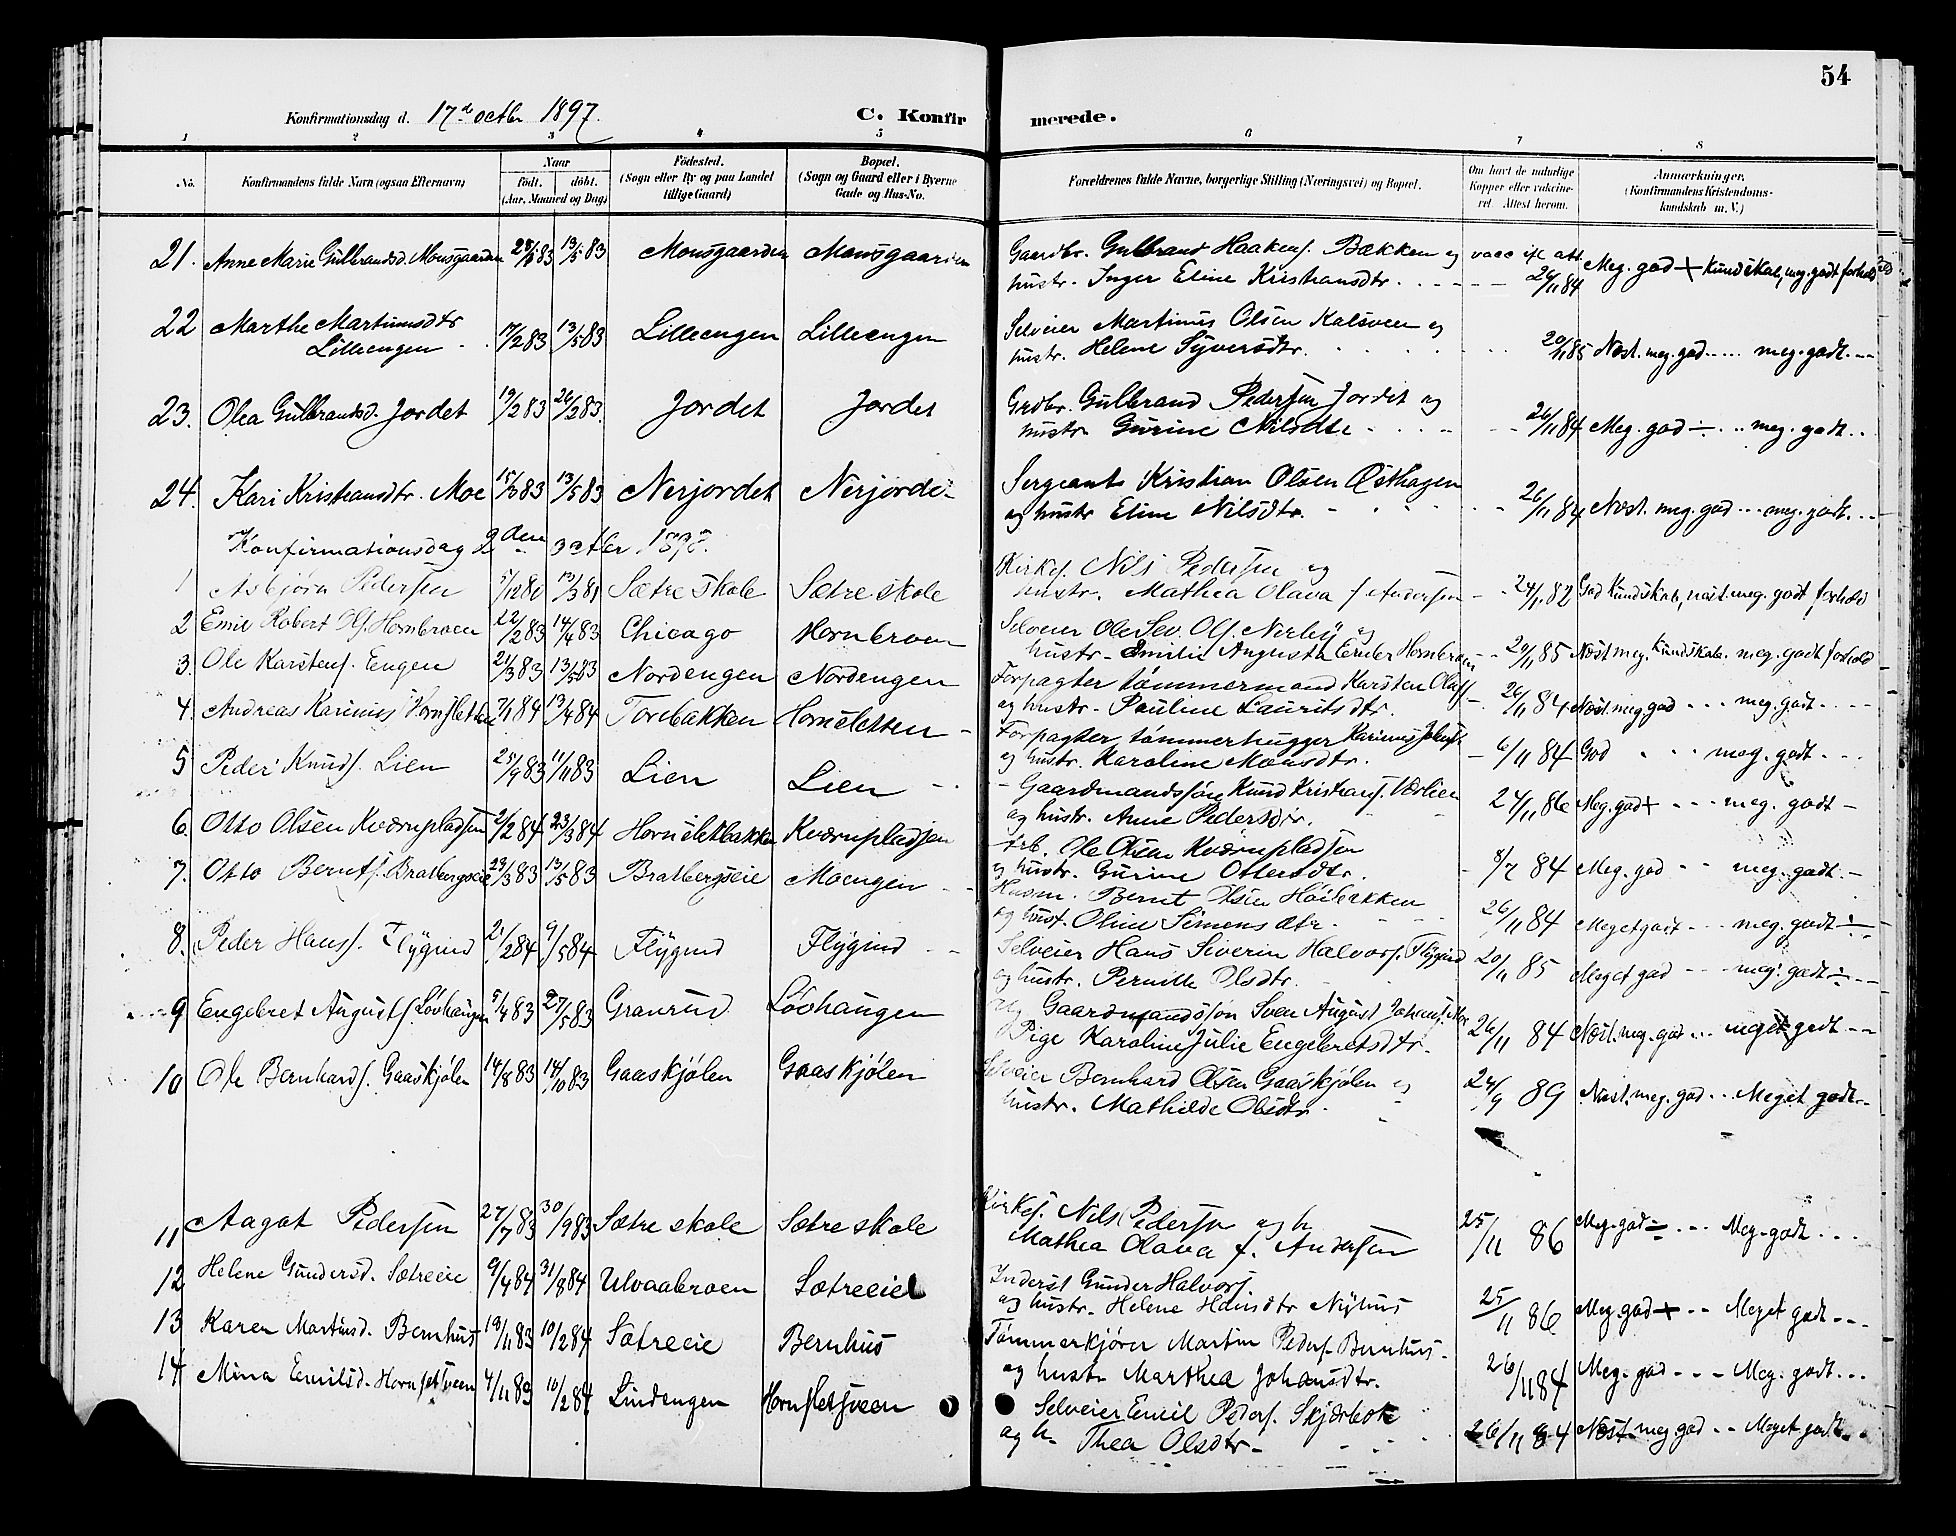 54
Konfirmationsdag d. 17de octbr 1897.
C. Konfirmerede.
1 2 3 4 5 6 7 8
No.
Konfirmandens fulde Navn (ogsaa Efternavn)
Naar
födt. döbt.
(Aar, Maaned og Dag)
Födested.
(Sogn eller By og paa Landet
tillige Gaard)
Bopæl.
(Sogn og Gaard eller i Byerne
Gade og Hus-No.
Forældrenes fulde Navne, borgerlige Stilling (Næringsvei) og Bopæl.
Om havt de naturlige
Kopper eller vaccine-
ret. Attest herom.
Anmærkninger,
(Konfirmandens Kristendoms-
kundskab m. V.)
21. Anne Marie Gulbrandsd. Monsgaarden 13/5 83 Monsgaarden Monsgaarden Gaardbr. Gulbrand Haakens. Bækken og vacc
hustr. Inger Eline Kristiansdtr. 26/11 84 Meg. god + Kundskab, meg. godt forhold
22 Marthe Martinusdtr
Lilleengen 17/2 83 13/5 83 Lilleengen Lilleengen Selveier Martinus Olsen Kalsveen og
hustr. Helene Syversdtr. 20/11 85 Næst. meg. god ... meg. godt.
23. Olea Gulbrandsd. Jordet 19/2 83 26/3 83 Jordet Jordet Grdbr. Gulbrand Pedersen Jordet og
hustr. Gurine Nilsdtr 26/11 84 Meg. god ÷ .. meg. godt ..
24. Kari Kristiansdtr. Moe 15/3 83 13/5 83 Nerjordet Nerjordet Sergeant Kristian Olsen Østhagen
og hustr Eline Nilsdtr. 26/11 84 Næst. meg. god ... meg. godt.
Konfirmationsdag 2den octbr 1898.
1 Asbjørn Pedersen 5/12 80 13/3 81 Sætre skole Sætre skole Kirkes. Nils Pedersen og
hustr. Mathea Olava f. Andersen 24/11 82 God Kundskab, næst. meg. godt forhold
2 Emil Robert Ols. Hornbroen 22/2 83 14/4 83 Chicago Hornbroen Selveier Ole Sev. Ols. Nerby og
hustr. Emilie Augusta Hornbroen 20/11 85 Næst meg. Kundskab. meg. godt forhold
3. Ole Karstens. Engen 21/3 83 13/5 83 Nordengen Nordengen Forpagter tømmermand Karsten Olafs.
og hustr. Pauline Lauritsdtr. 26/11 84 Næst. meg god ... meg. godt.
4. Andreas Karinius Hornsletten 7/1 84 13/4 84 Torebakken Hornsletten Forpagter tømmerhugger Karinius Johs.
og hustr. Karoline Monsdtr. 6/11 84 God ... meg. godt.
5 Peder Knuds. Lien 25/9 83 11/11 83 Lien Lien Gaardmandssøn Knud Kristians. Værlien
og hustr. Anne Pedersdtr. 24/11 86 Meg. god + ... meg. godt
6. Otto Olsen Kværnpladsen 2/2 84 23/3 84 Hornsletbakken Kværnpladsen Arb. Ole Olsen Kværnpladsen
og hustr. Gurine Ottersdtr. 8/7 84 Meg. god .. meg. godt.
7. Otto Bernts. Bratbergseie 23/3 83 13/5 83 Bratbergseie Moengen Husm. Bernt Olsen Høibekken
og hust. Oline Simensdtr. 26/11 84 Meget godt ... meg. godt ÷
8. Peder Hanss. Flygind 21/2 84 9/5 84 Flygind Flygind Selveier Hans Siverin Halvors. Flygind
og hustr. Pernille Olsdtr. 20/11 85 Meget god ... meg. godt ÷
9 Engebret Augusts. Løvhaugen 5/4 83 27/5 83 Granrud Løvhaugen Gaardmandssøn Sven August Johans.
Pige Karoline Julie Engebretsdtr. 26/11 84 Næst. meg. god ... meget godt
10 Ole Bernhards. Gaaskjølen 14/8 83 14/10 83 Gaaskjølen Gaaskjølen Selveier Bernhard Olsen Gaaskjølen og
hustr. Mathilde Olsdtr. 24/9 89 Næst. meg. god .. Meget godt.
11 Aagot Pedersen 27/7 83 30/9 83 Sætre skole Sætre skole Kirkes. Nils Pedersen og h.
Mathea Olava f. Andersen 25/11 86 Meg. god ÷ ... Meg. godt ...
12 Helene Gundersd. Sætreeie 9/4 84 31/8 84 Ulvaabroen Sætreeie Inderst Gunder Halvors.
og hustr. Helene Hansdtr Nyhus 25/11 86 Meg. god + .. Meget godt ...
13 Karen Martinsd. Bernhus 19/11 83 10/2 84 Sætreeie Bernhus Tømmerkjører Martin Peders. Bernhus
og hustr. Marthea Johansdtr. 26/11 84 Meg. god ... Meg. godt ...
14 Mina Emilsd. Hornsletsveen 4/11 83 10/2 84 Lindengen Hornsletsveen Selveier Emil Peders. Skjærbek
og h. Thea Olsdtr. 26/11 84 Næst meg god .. Meget godt.